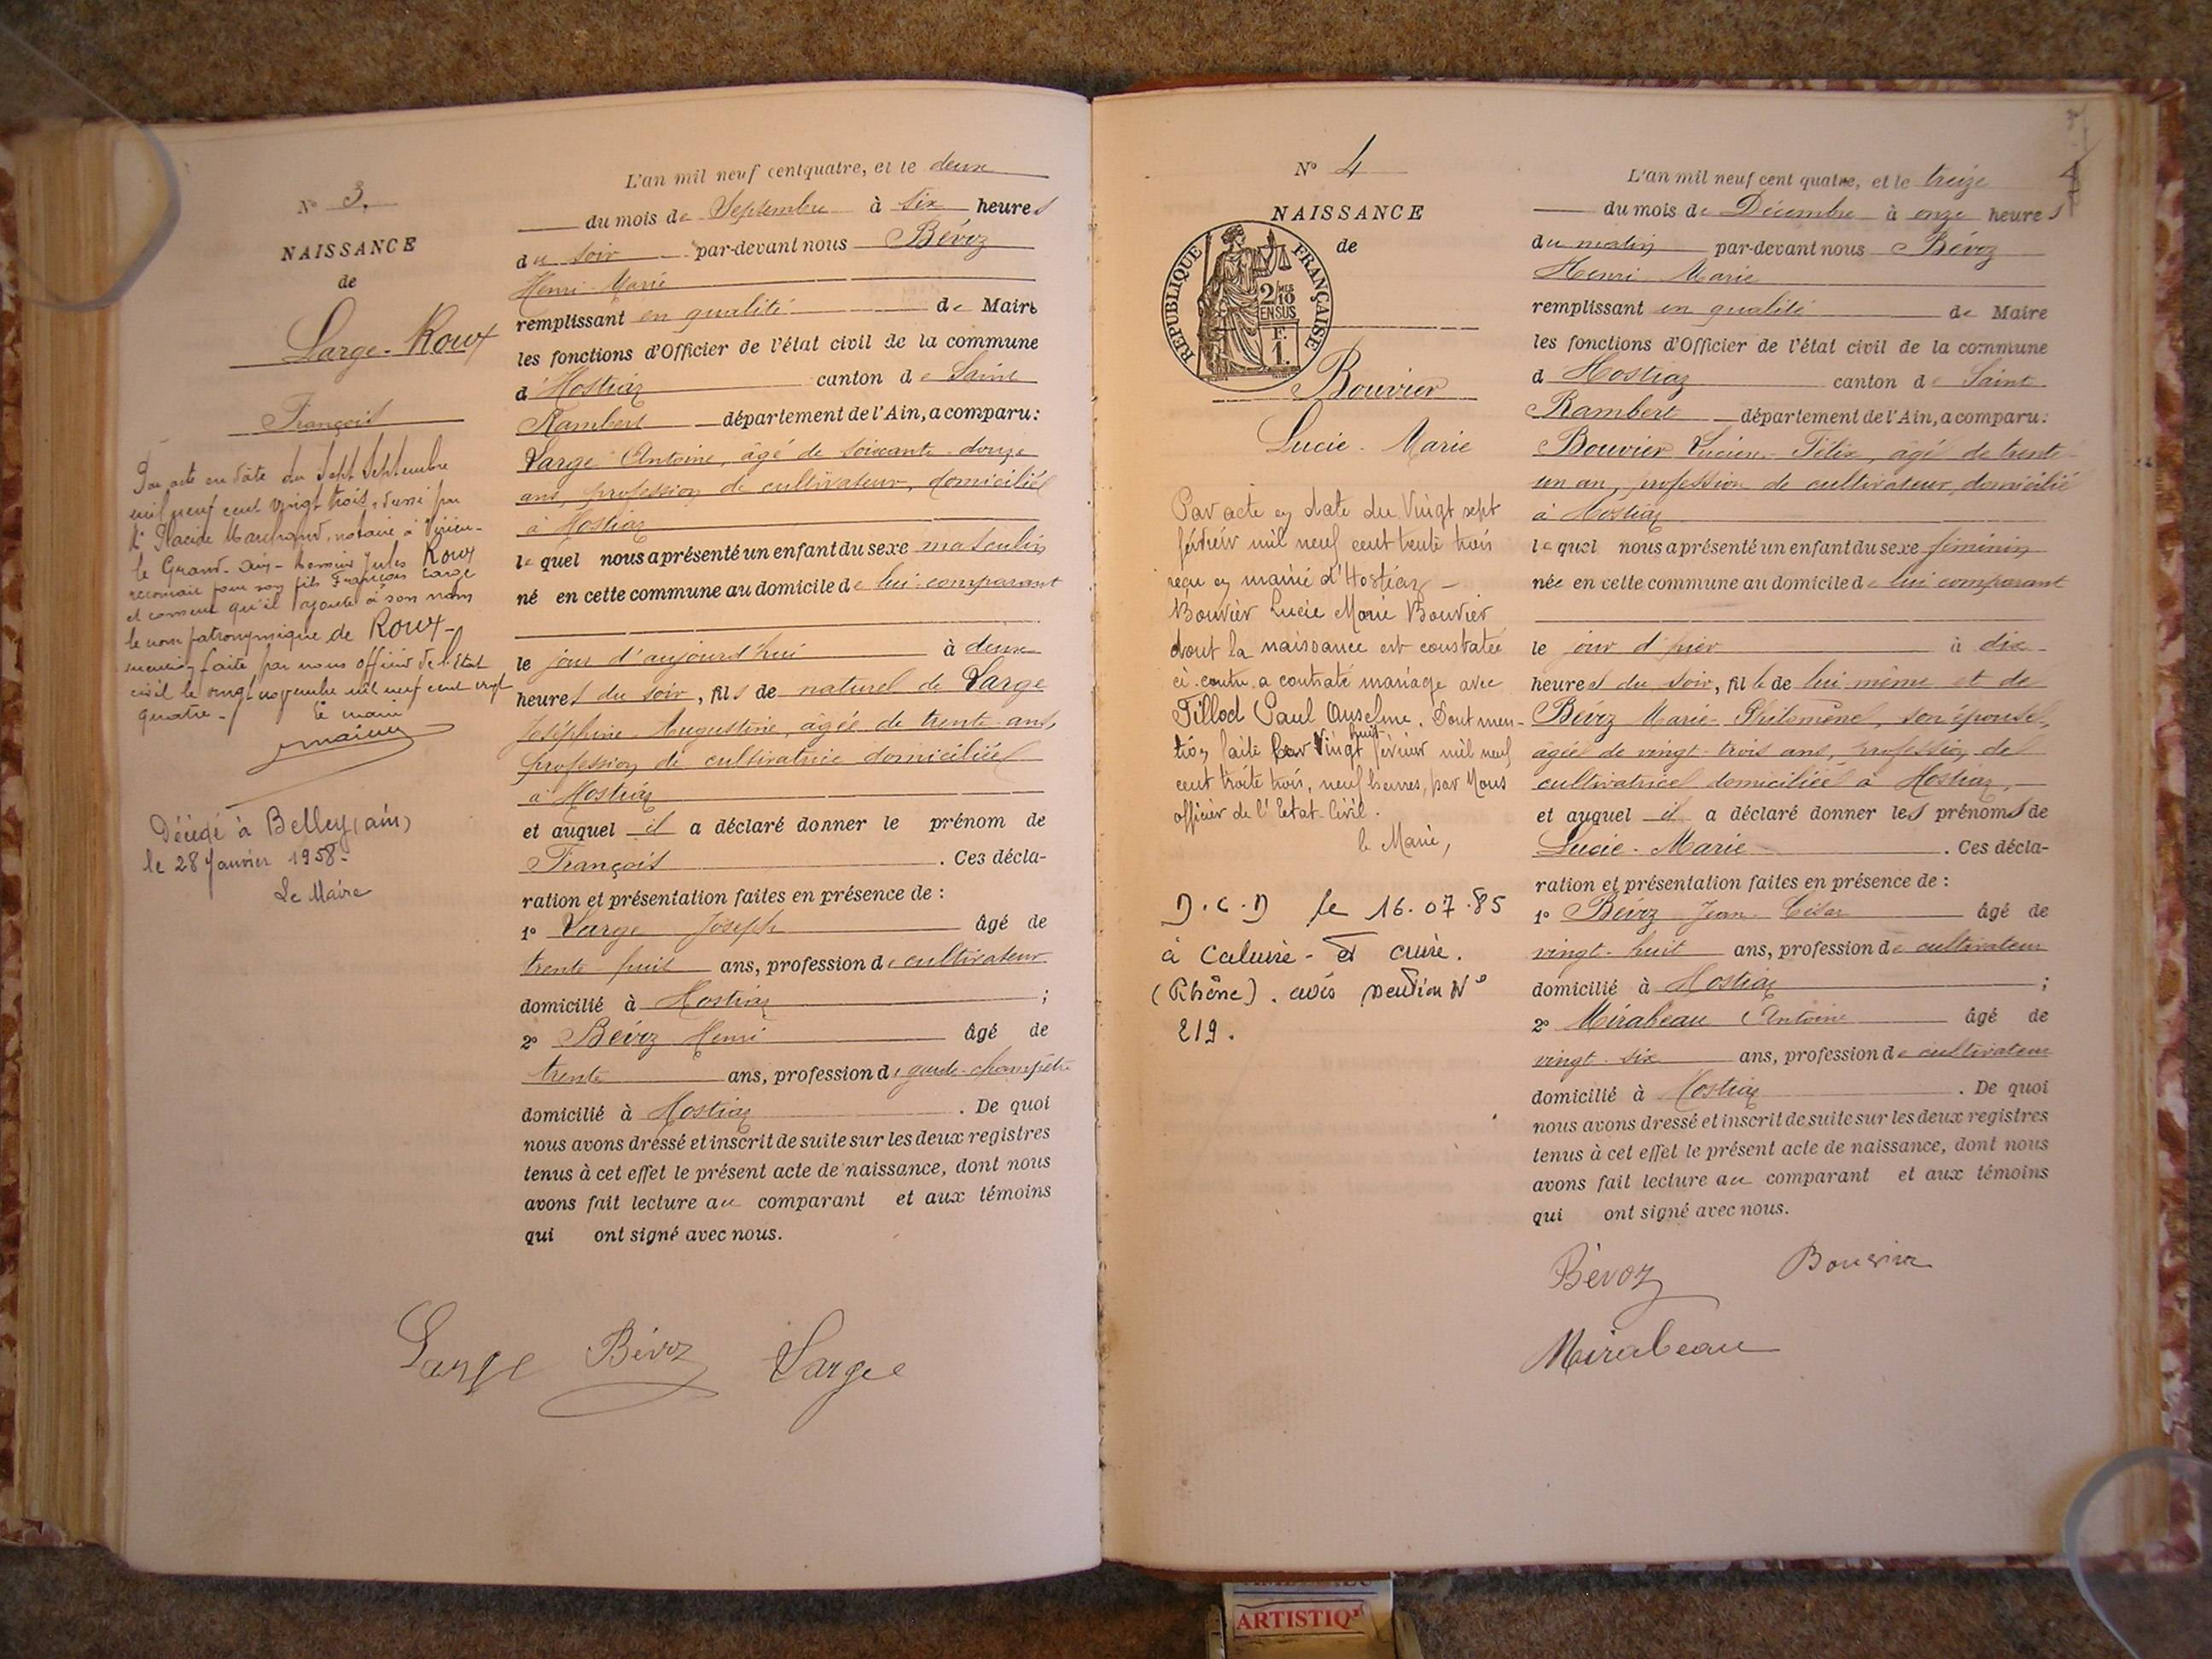 N° 3.
NAISSANCE
de
Large-Roux
François
Par acte en date du Sept Septembre
mil neuf cent vingt trois, dressé par
Mr Placide Marchand, notaire à Virieu-
le Grand-Ain- Jules Roux
reconnait pour son fils François Large
et consent qu'il ajoute à son nom
le nom patronymique de Roux-
mention faite par nous officier de l'Etat
civil le vingt novembre mil neuf cent vingt
quatre.- Le maire
Décédé à Belley (ain)
le 28 Janvier 1958-
Le Maire
L'an mil neuf cent quatre, et le deux
du mois de Septembre à six heures
du soir par-devant nous Bévoz
Henri-Marie
remplissant en qualité de Maire
les fonctions d'Officier de l'état civil de la commune
d'Hostiaz canton de Saint
Rambert département de l'Ain, a comparu:
Large Antoine, âgé de soixante-douze
ans, profession de cultivateur, domicilié
à Hostiaz
lequel nous a présenté un enfant du sexe masculin
né en cette commune au domicile de lui comparant
le jour d'aujourd'hui à deux
heures du soir, fils de naturel de Large
Joséphine Augustine, âgée de trente ans,
profession de cultivatrice domiciliée
à Hostiaz
et auquel il a déclaré donner le prénom de
François . Ces décla-
ration et présentation faites en présence de :
1° Large Joseph âgé de
trente-huit ans, profession de cultivateur
domicilié à Hostiaz ;
2° Bévoz Henri âgé de
trente ans, profession de garde-champêtre
domicilié à Hostiaz . De quoi
nous avons dressé et inscrit de suite sur les deux registres
tenus à cet effet le présent acte de naissance, dont nous
avons fait lecture au comparant et aux témoins
qui ont signé avec nous.
Large Bévoz Large
N° 4
NAISSANCE
de
REPUBLIQUE FRANÇAISE
2/10 MES
EN SUS
F.
1.
Bouvier
Lucie-Marie
Par acte en date du Vingt sept
février mil neuf cent trente trois
reçu en mairie d'Hostiaz -
Bouvier Lucie Marie Bouvier
dont la naissance est constatée
ci-contre a contracté mariage avec
Tillod Paul Anselme. Dont men-
tion faite le Vingt huit février mil neuf
cent trente trois, neuf heures, par Nous
officier de l'Etat-Civil.
le Maire,
D.C.D le 16.07.85
à Caluire-et cuire.
(Rhône). avis mention N°
219.
4
L'an mil neuf cent quatre, et le treize
du mois de Décembre à onze heures
du matin par-devant nous Bévoz
Henri Marie
remplissant en qualité de Maire
les fonctions d'Officier de l'état civil de la commune
d Hostiaz canton de Saint
Rambert département de l'Ain, a comparu:
Bouvier Lucien-Félix, âgé de trente-
un an, profession de cultivateur, domicilié
à Hostiaz
lequel nous a présenté un enfant du sexe féminin
née en cette commune au domicile de lui comparant
le jour d'hier à dix
heures du soir, fille de lui même et de
Bévoz Marie-Philomène, son épouse,
âgée de vingt-trois ans, profession de
cultivatrice domiciliée à Hostiaz,
et auquel il a déclaré donner les prénoms de
Lucie-Marie . Ces décla-
ration et présentation faites en présence de :
1° Bévoz Jean-César âgé de
vingt-huit ans, profession de cultivateur
domicilié à Hostiaz ;
2° Mirabeau Antoine âgé de
vingt-six ans, profession de cultivateur
domicilié à Hostiaz . De quoi
nous avons dressé et inscrit de suite sur les deux registres
tenus à cet effet le présent acte de naissance, dont nous
avons fait lecture au comparant et aux témoins
qui ont signé avec nous.
Bévoz Bouvier
Mirabeau
ARTISTIQ